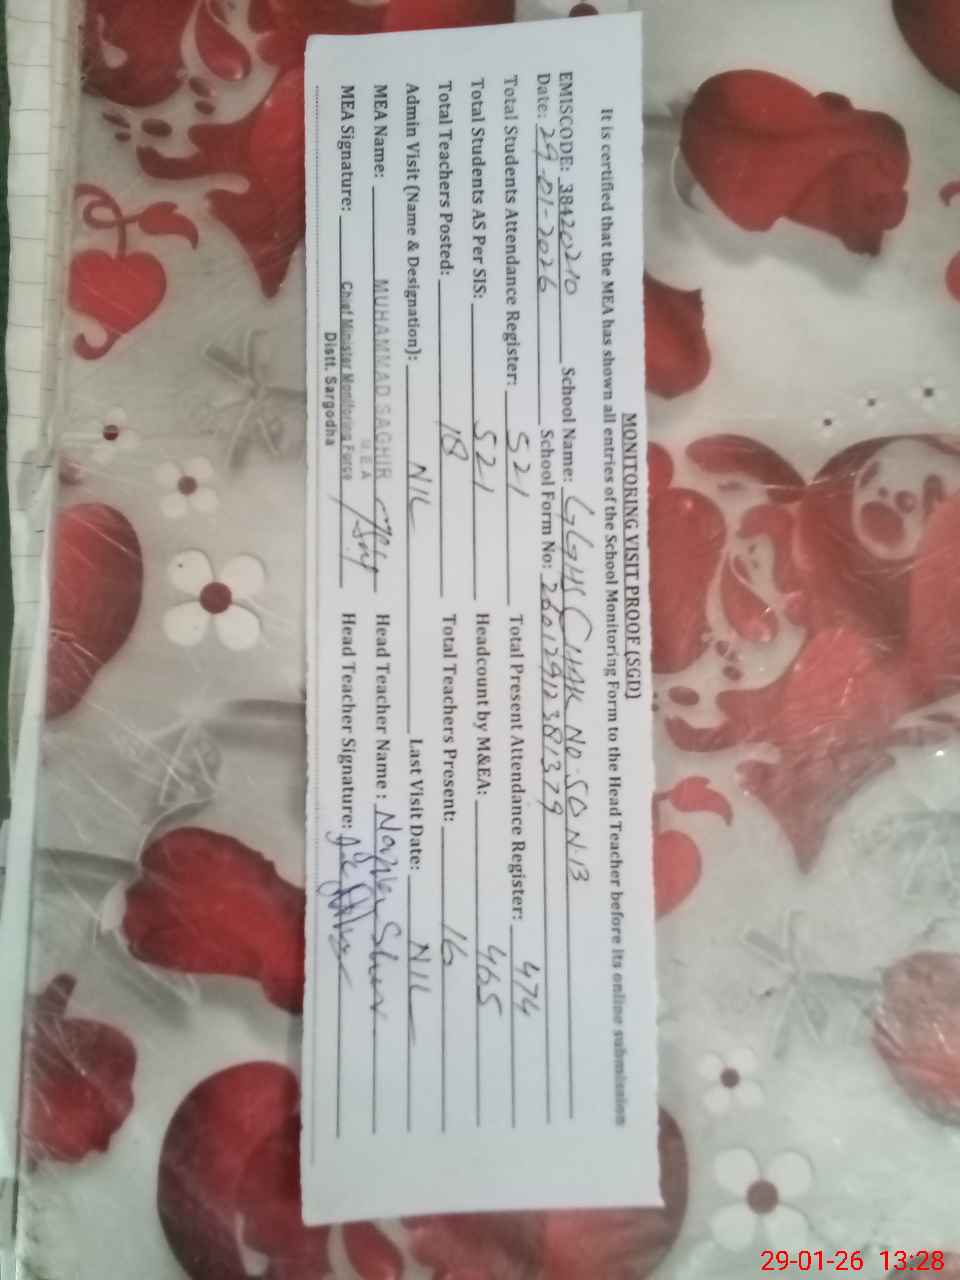 MONITORING VISIT PROOF (SGD)
It is certified that the MEA has shown all entries of the School Monitoring Form to the Head Teacher before its online submission
EMISCODE: 38420210 School Name: GGHS CHAK NO.50 N.B
Date: 29-01-2026 School Form No: 26012912381379
Total Students Attendance Register: 521 Total Present Attendance Register: 474
Total Students AS Per SIS: 521 Headcount by M&EA: 465
Total Teachers Posted: 18 Total Teachers Present: 16
Admin Visit (Name & Designation): NIL Last Visit Date: NIL
MEA Name: MUHAMMAD SAGHIR Head Teacher Name:
M.E.A
MEA Signature: Chief Minister Monitoring Force Head Teacher Signature:
Distt. Sargodha
29-01-26 13:28